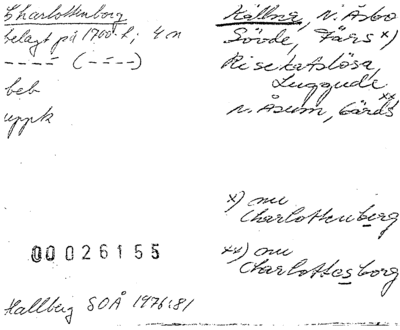 Charlottenborg
belagt på 1700-t; 4 n
---- (----)
beb
uppk
Källna, N. Åsbo
Sövde, Färs x)
Risekatslösa,
Luggude
N. Åsum, Gärds xx)
x) nu
Charlottenberg
xx) nu
Charlottesborg
00026155
Hallberg SOÅ 1976:81